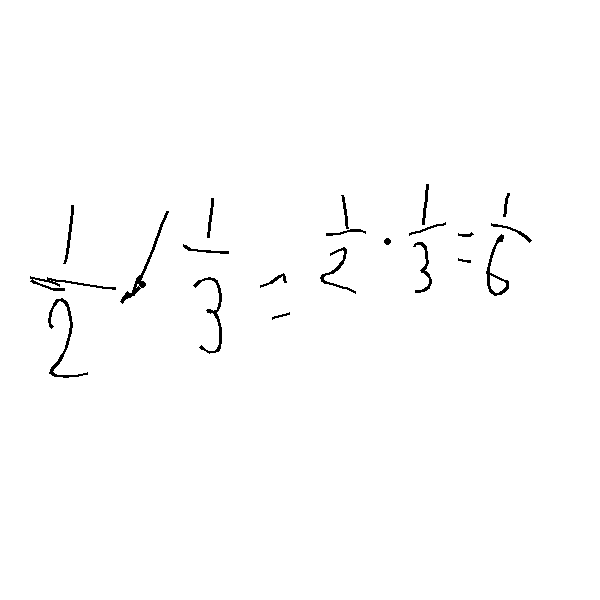 1/2 / 1/3 = 1/2 · 1/3 = 1/6